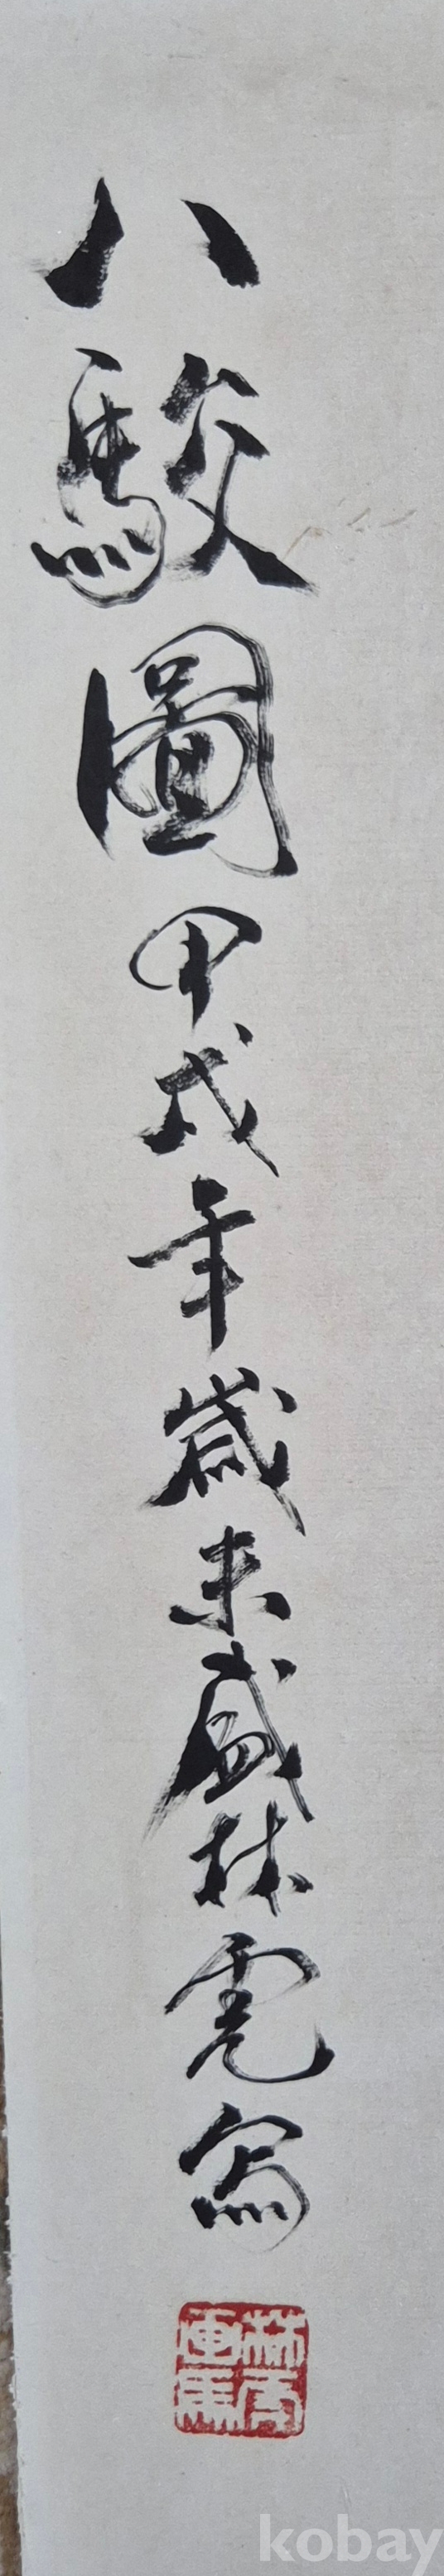 八駿圖甲戌年歲末盛林虎寫
林虎
画馬
kobay